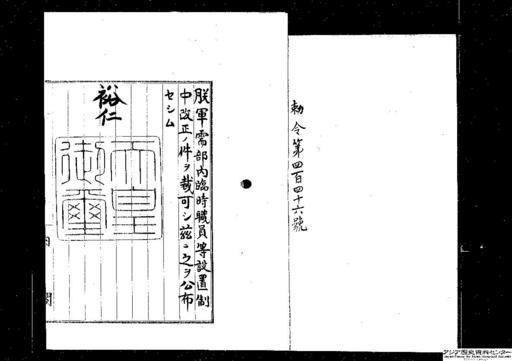 勅令第四百四十六號
朕軍需部內臨時職員等設置制
中改正ノ件ヲ裁可シ茲ニ之ヲ公布
セシム
裕仁
天皇
御璽
內閣
アジア歴史資料センター